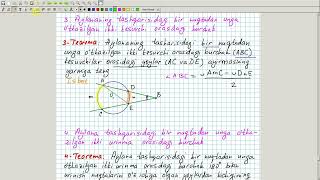 3. Aylananing tashqarisidagi bir nuqtadan unga
o'tkazilgan ikki kesuvchi orasidagi burchak
3-Teorema: Aylananing tashqarisidagi bir nuqtadan
unga o'tkazilgan ikki kesuvchi orasidagi burchak (ABC)
kesuvchilar orasidagi yoylar (AC va DE) ayirmasining
yarmiga teng
∠ABC = ∪AmC - ∪DnE
2
Isbot
A
D
O
B
E
C
4. Aylana tashqarisidagi bir nuqtadan unga o'tka-
zilgan ikki urinma orasidagi burchak
4-Teorema: Aylana tashqarisidagi bir nuqtadan unga
o'tkazilgan ikki urinma orasidagi burchak 180° bilan
urinish nuqtalarini o'z ichiga olgan yoylardan kichigining